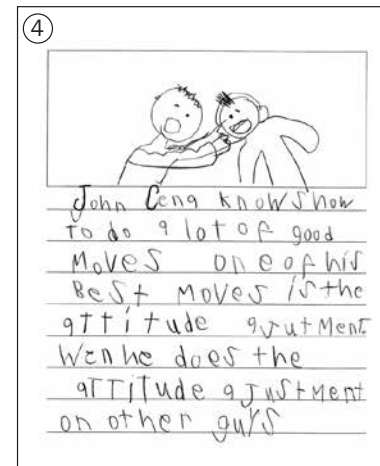 ④
John Cena knows how
to do a lot of good
Moves one of his
Best Moves is the
attitude ajutment.
Wen he does the
aTTiTude ajustment
on other guys